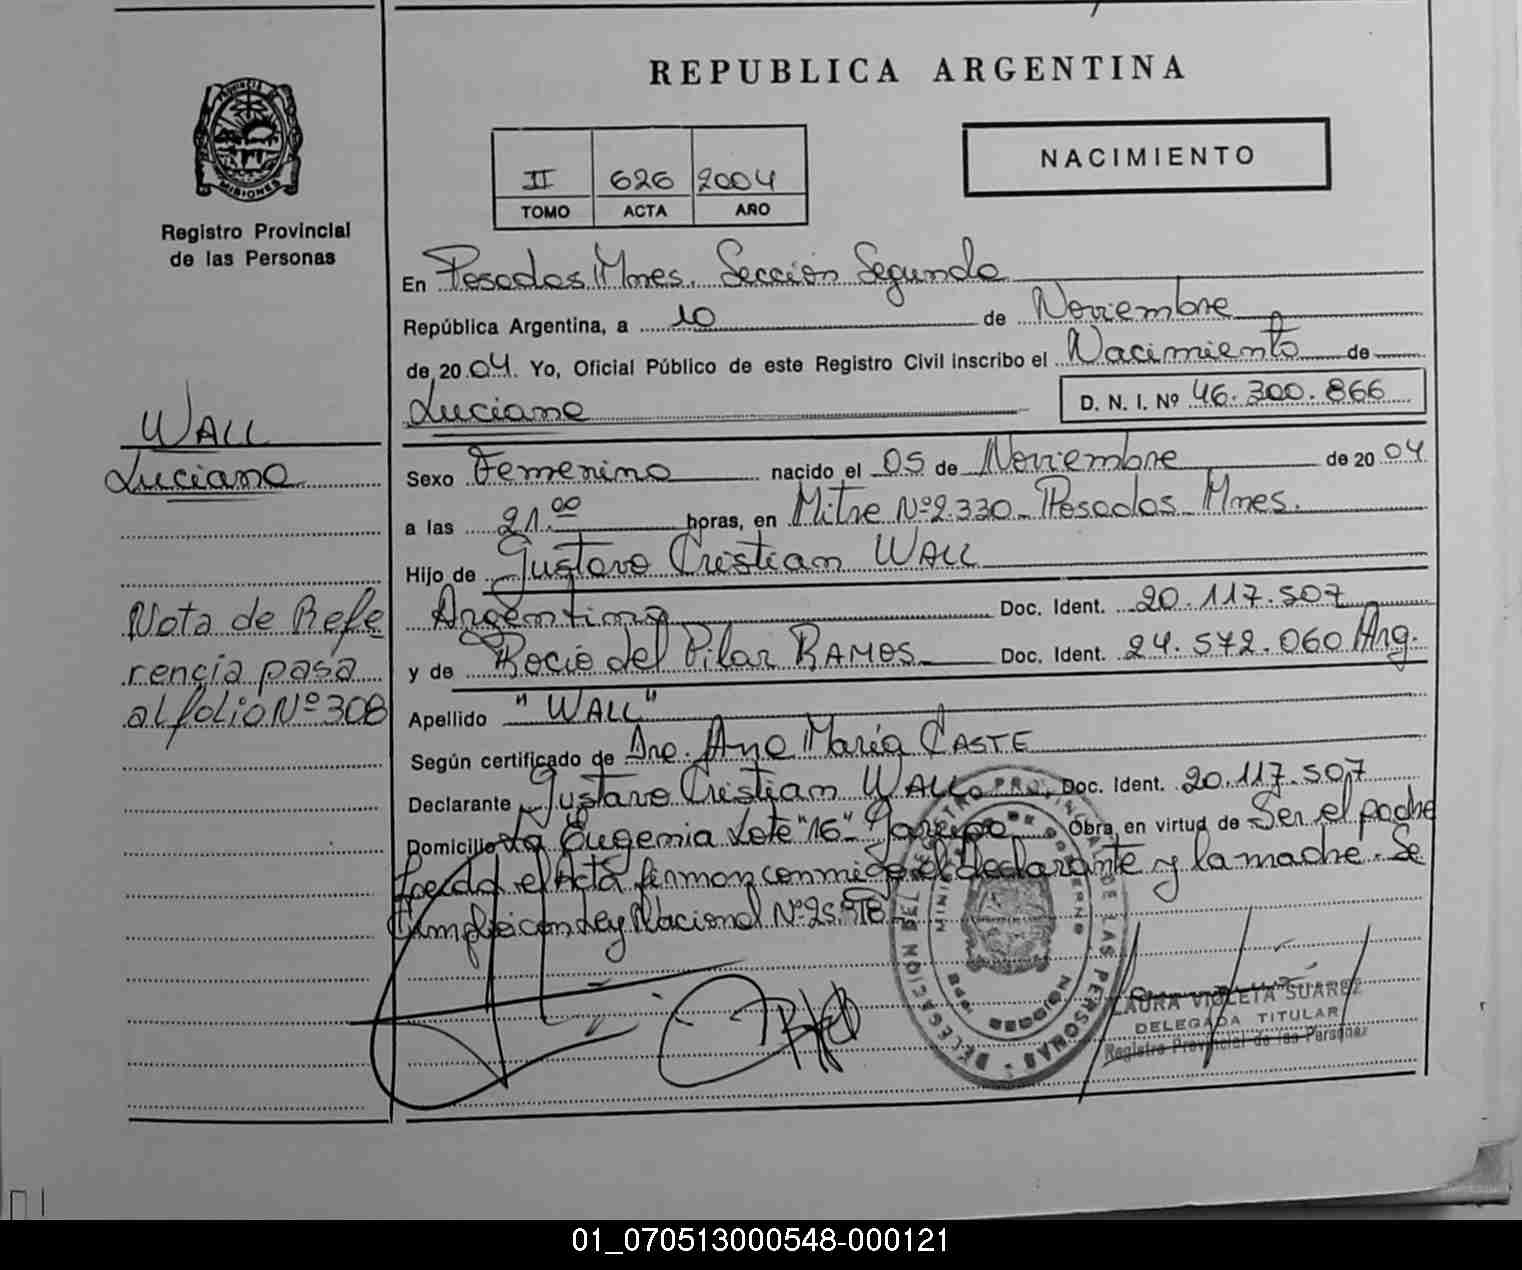 REPUBLICA ARGENTINA
NACIMIENTO
II 626 2004
TOMO ACTA AÑO
PROVINCIA DE
MISIONES
Registro Provincial
de las Personas
En Posadas Mnes. Sección Segunda
República Argentina, a 10 de Noviembre
de 2004. Yo, Oficial Público de este Registro Civil inscribo el Nacimiento de
Luciana D. N. I. Nº 46.300.866
WALL
Luciana
Sexo Femenino nacido el 05 de Noviembre de 2004
a las 21.00 horas, en Mitre Nº 2.330_ Posadas_ Mnes.
Hijo de Gustavo Cristian WALL
Argentina Doc. Ident. 20.117.507
y de Rocio del Pilar RAMOS Doc. Ident. 24.572.060 Arg.
Nota de Refe
rencia pasa
al folio Nº 308
Apellido "WALL"
Según certificado de Dra. Ana María CASTE
Declarante Gustavo Cristian WALL Doc. Ident. 20.117.507
Domicilio La Eugenia Lote "16" Garupa Obra en virtud de Ser el padre
Leida el Acta firman conmigo el Declarante y la madre. Se
Cumple con Ley Nacional Nº
DELEGACION DEL REGISTRO PROVINCIAL DE LAS PERSONAS
LAURA VIOLETA SUAREZ
DELEGADA TITULAR
Registro Provincial de las Personas
01_070513000548-000121